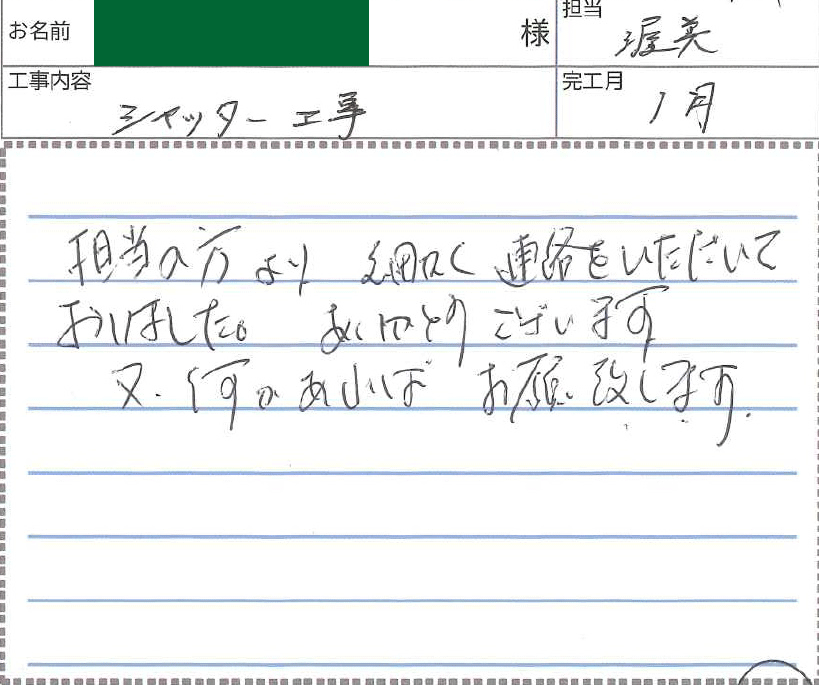 お名前 様 担当 渥美
工事内容 シャッター工事 完工月 1月
担当の方より 細かく連絡をいただいて
おりました。 ありがとうございます
又、何かあれば お願い致します。